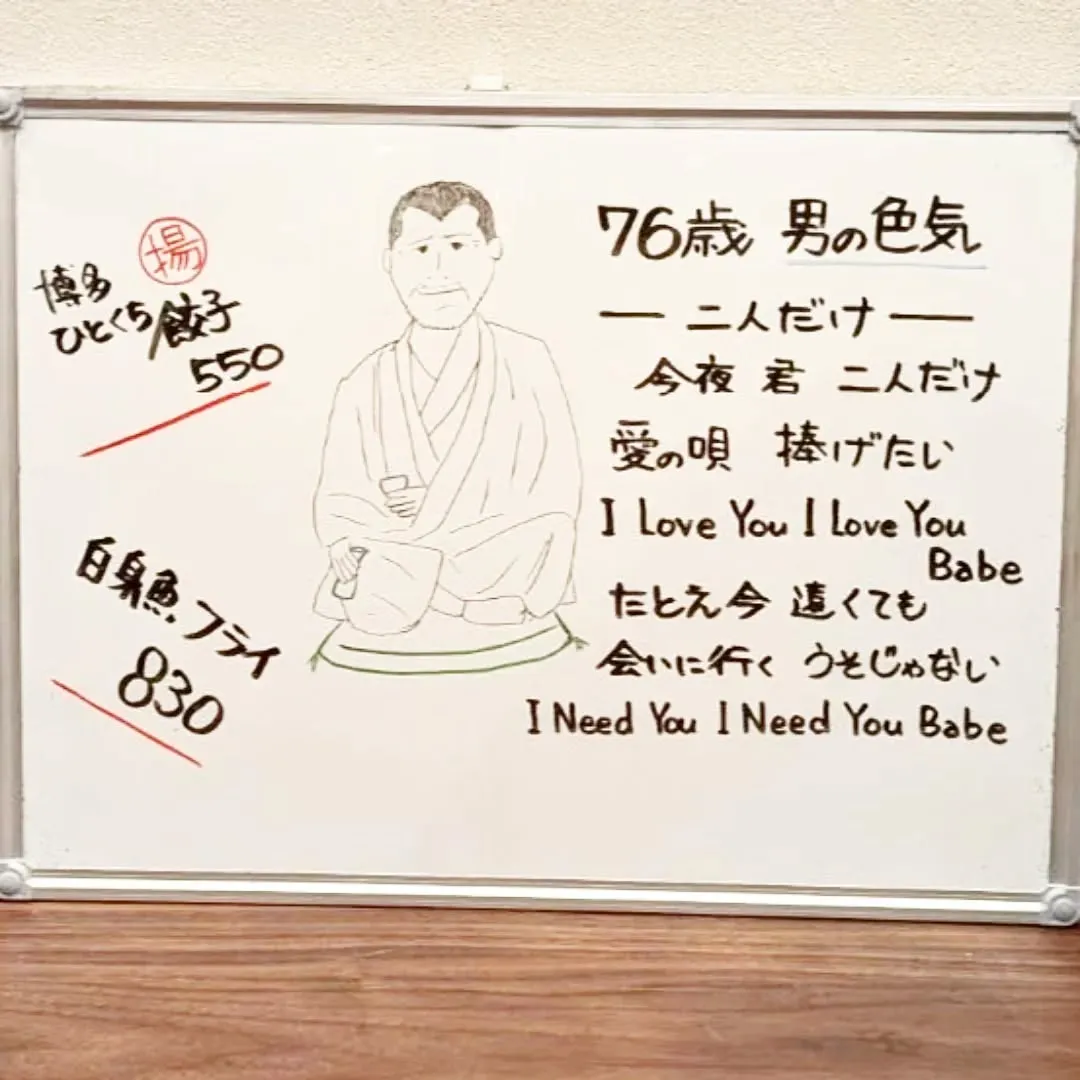 揚
博多
ひとくち餃子
550
白身魚.フライ
830
76歳 男の色気
― 二人だけ ―
今夜 君 二人だけ
愛の唄 捧げたい
I Love You I Love You
Babe
たとえ今 遠くても
会いに行く うそじゃない
I Need You I Need You Babe